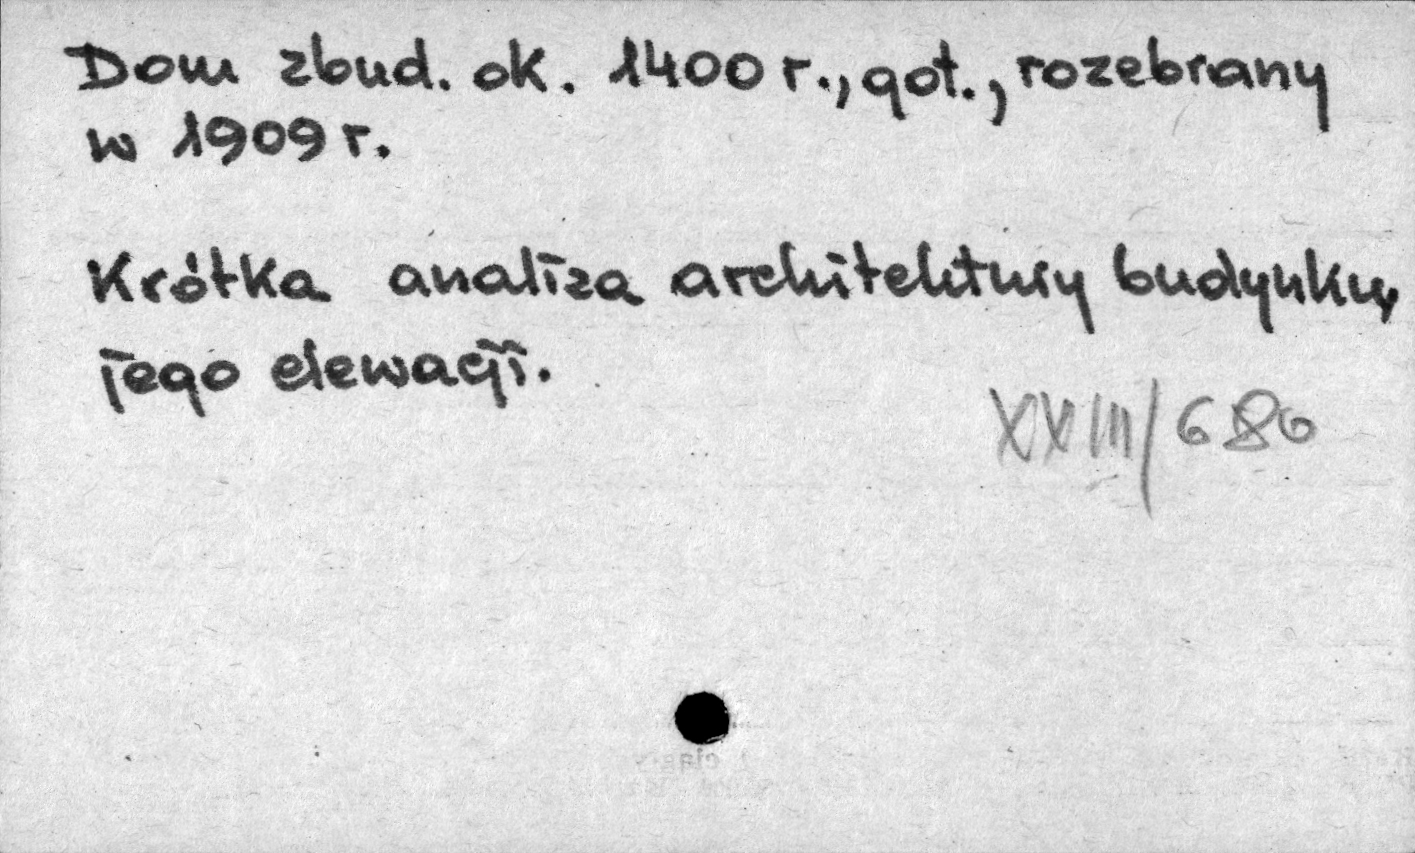 Dom zbud. ok. 1400 r., got., rozebrany
w 1909 r.
Krótka analiza architektury budynku,
jego elewacji.
XXIII/680